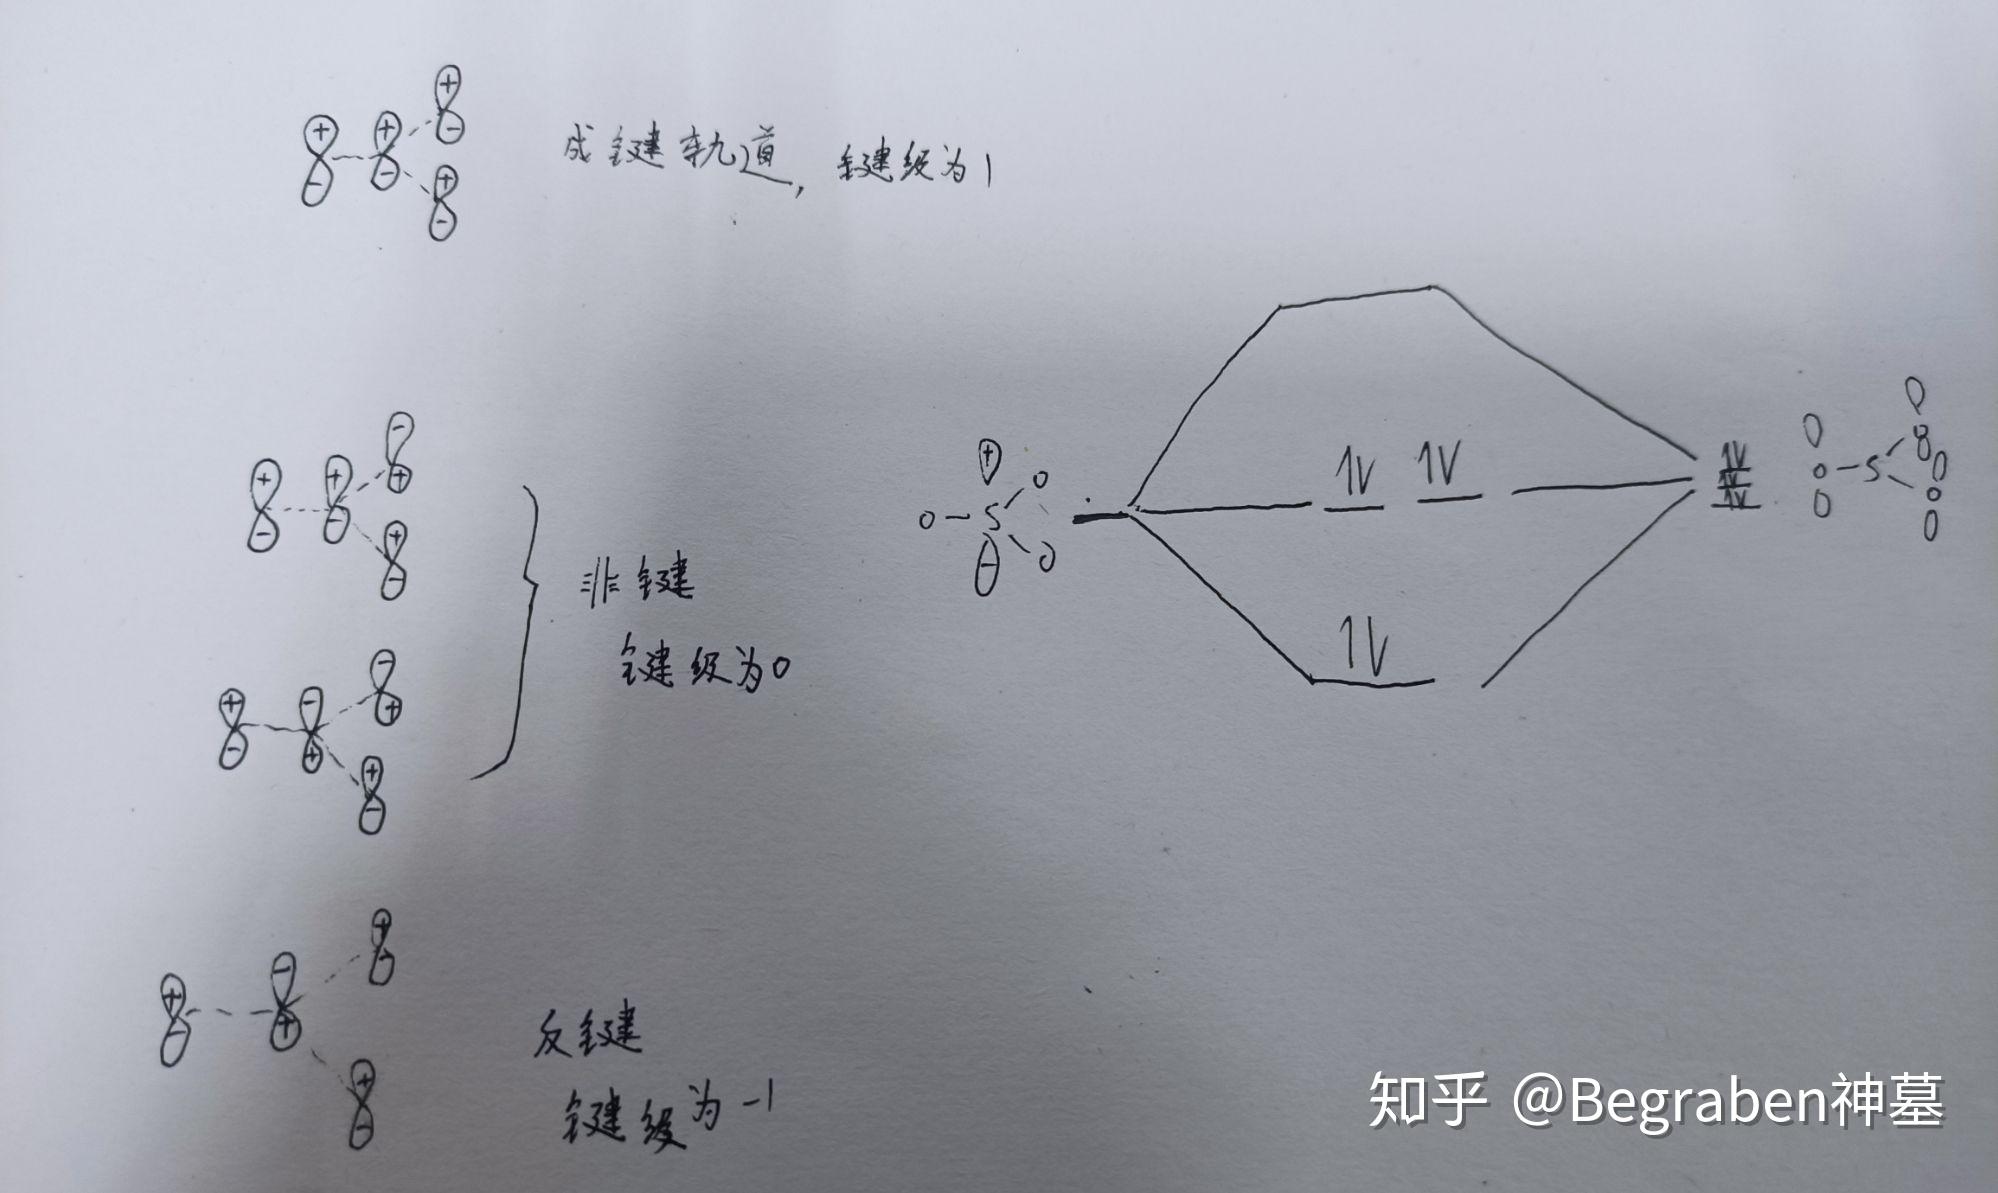 成键轨道, 键级为1
非键
键级为0
反键
键级为-1
O-S
O
O
O-S
O
O
知乎 @Begraben神墓